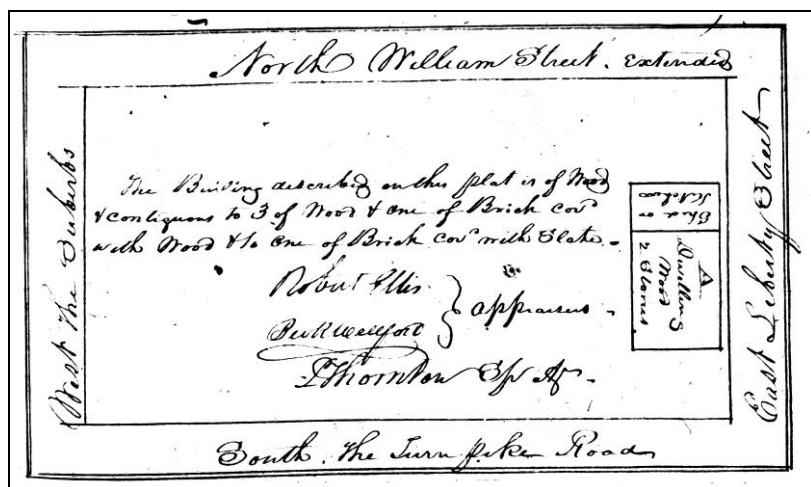 North William Street. Extended
West The Suburbs
The Building described on this plat is of Wood
& contiguous to 3 of Wood & one of Brick covd
with Wood & to one of Brick covd with Slate.
Robert Ellis
appraisers
Thornton Sp Agt.
Shed or
Kitchen
A
Dwelling
Wood
2 Stories
East Liberty Street
South. The Turn pike Road